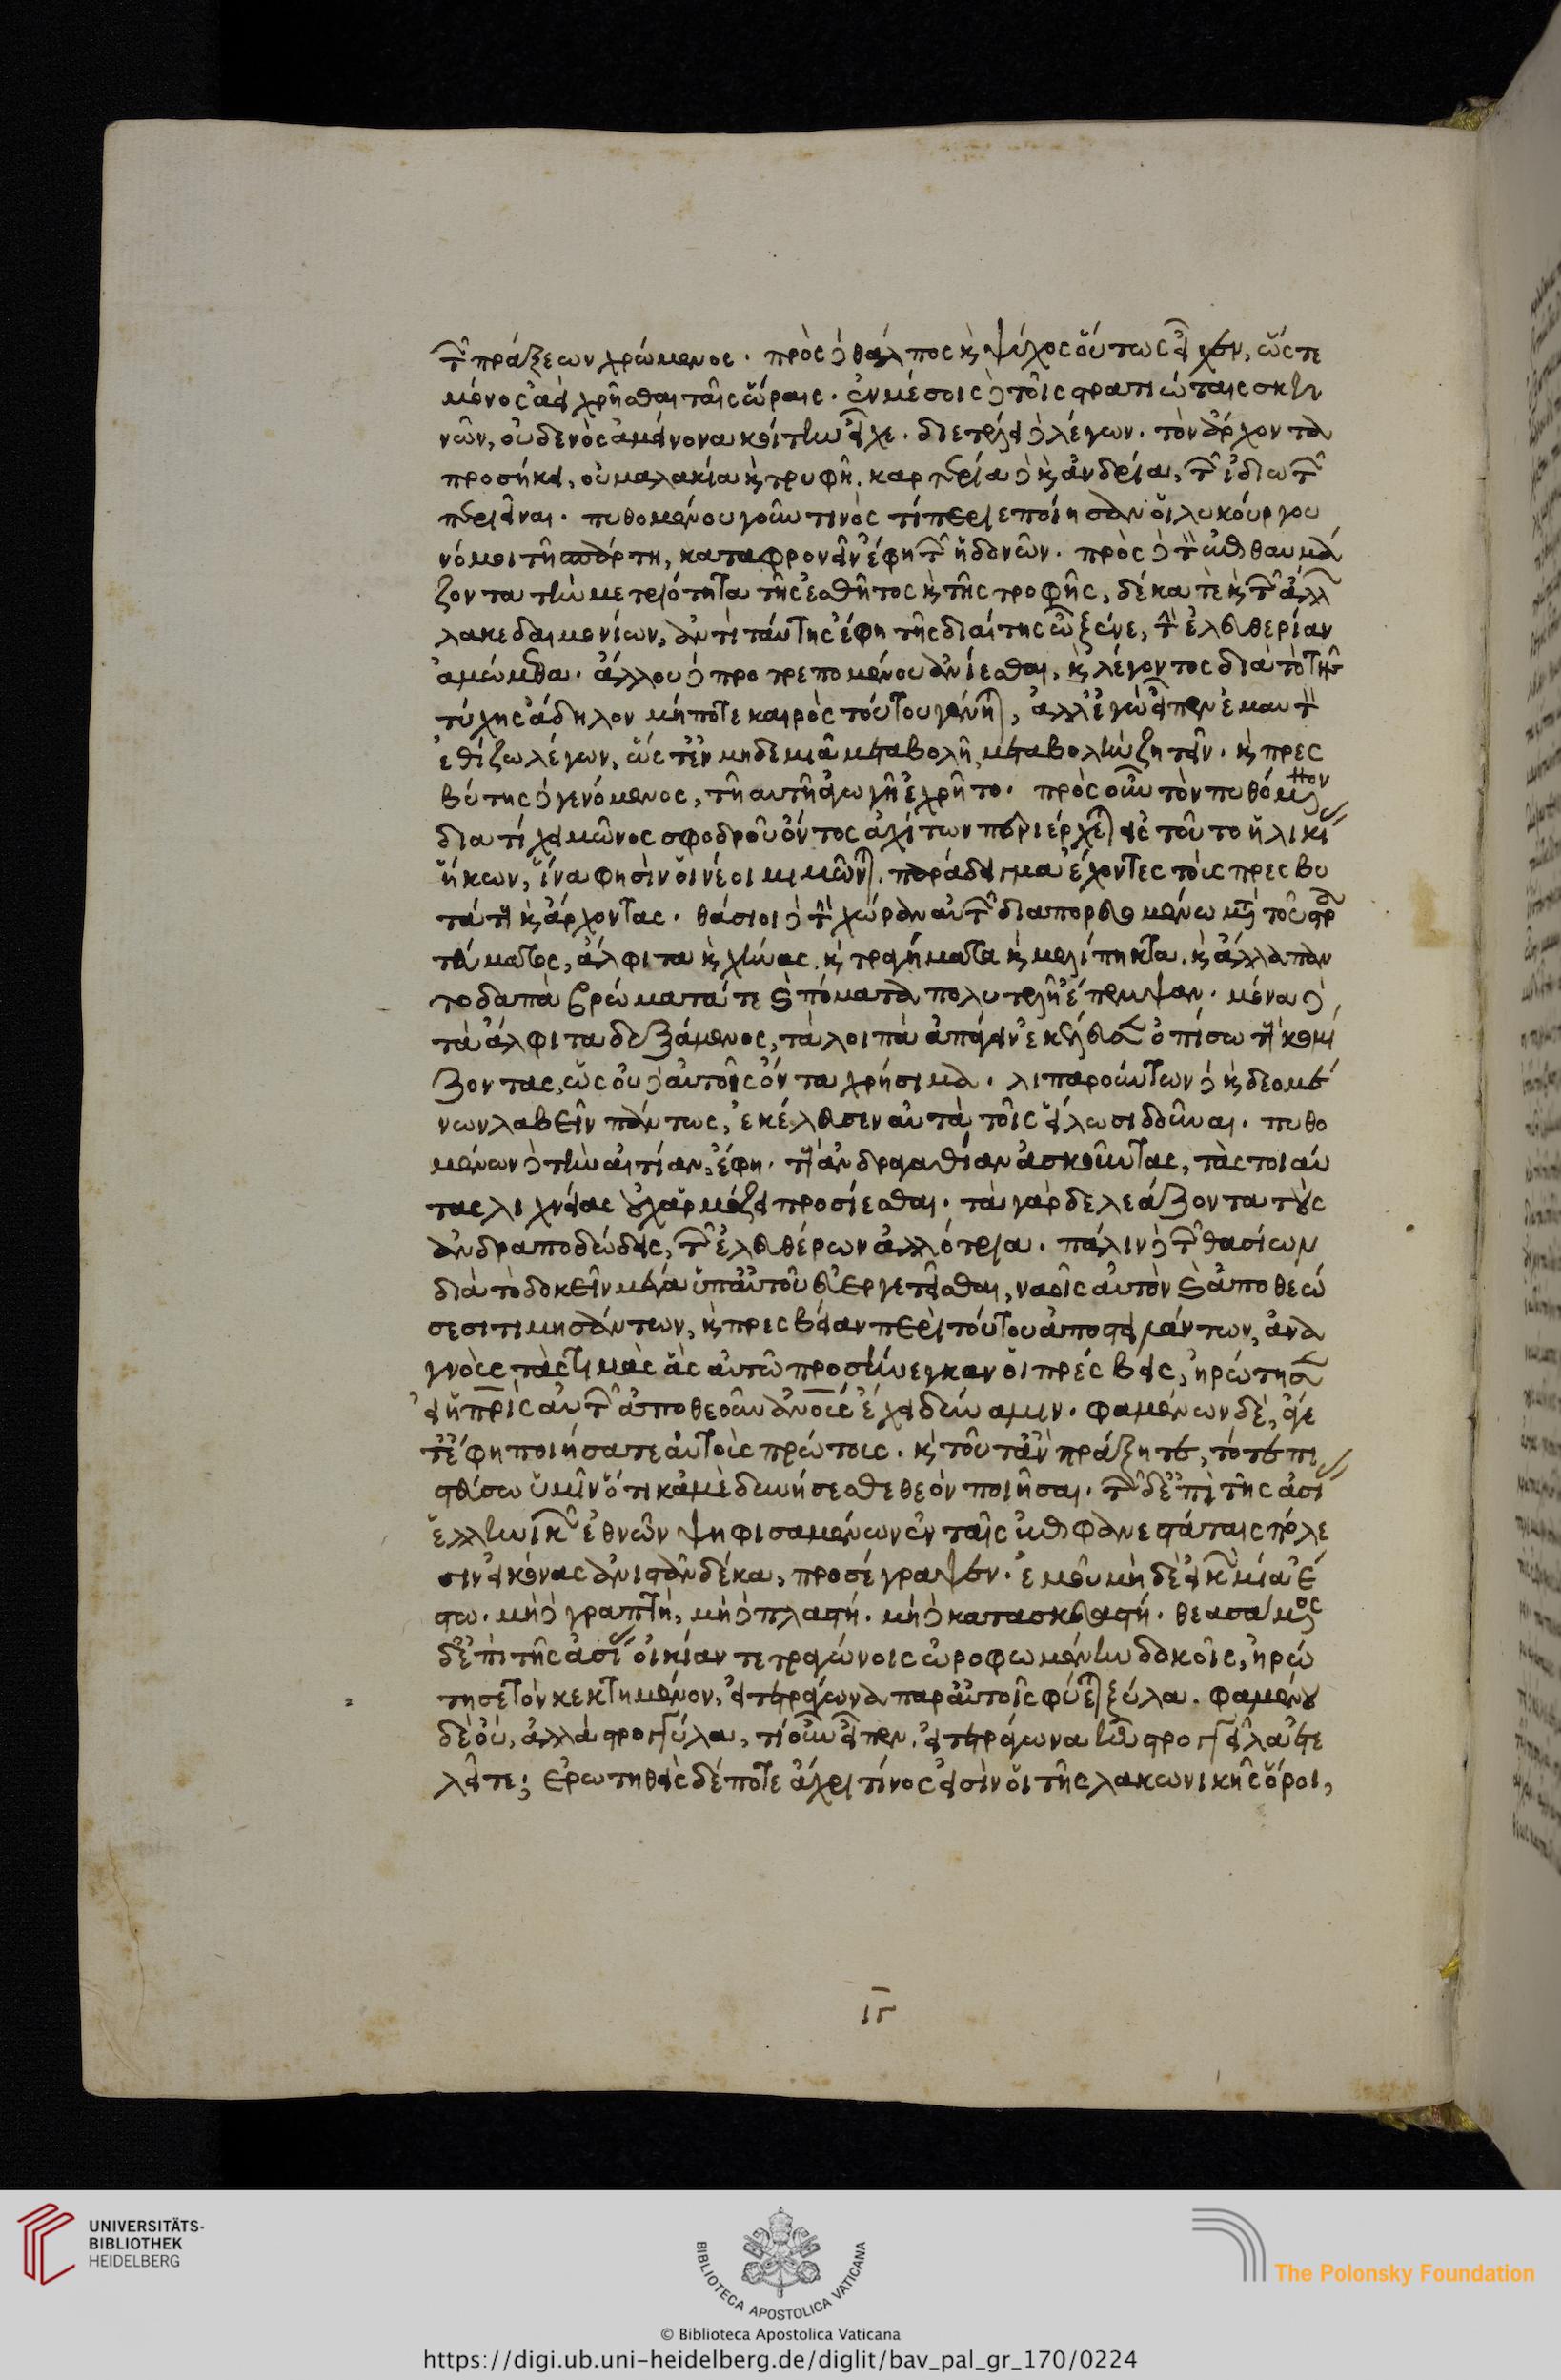 τῶν πράξεων χρώμενος. πρὸς δὲ θάλπος καὶ ψύχος οὕτως εἶχεν, ὥστε
μόνος ἀεὶ χρῆσθαι ταῖς ὥραις. ἐν μέσοις δὲ τοῖς στρατιώταις σκη
νῶν, οὐδενὸς ἀμείνονα κοίτην εἶχε. διετέλει δὲ λέγων. τὸν ἄρχοντα
προσήκει, οὐ μαλακία καὶ τρυφῆ. καρτερία δὲ καὶ ἀνδρία, τῶν ἰδιωτῶν
περιεῖναι. πυθομένου γοῦν τινὸς τί περιεποίησαν οἱ λυκούργου
νόμοι τῆ σπάρτη, καταφρονεῖν ἔφη τῶν ἡδονῶν. πρὸς δὲ τὸν θαυμά
ζοντα τὴν μετριότητα τῆς ἐσθῆτος καὶ τῆς τροφῆς, δέκα τὲ καὶ τῶν ἄλλων
λακεδαιμονίων, ἀντὶ ταύτης ἔφη τῆς διαίτης ὦ ξεῖνε, τὴν ἐλευθερίαν
ἀμώμεθα. ἄλλου δὲ προτρεπομένου ἀνίεσθαι, καὶ λέγοντος διὰ τὸ τῆς
τύχης ἄδηλον μήποτε καιρὸς τούτου γένηται, ἀλλ' ἐγὼ εἶπεν ἐμαυτὸν
ἐθίζω λέγων, ὥστ' ἐν μηδεμιᾶ μεταβολῆ μεταβολὴν ζητεῖν. καὶ πρεσ
βύτης δὲ γενόμενος, τῆ αυτῆ ἀγωγῆ ἐχρῆτο. πρὸς οὖν τὸν πυθόμενον
δια τί χειμῶνος σφοδροῦ ὄντος ἀχίτων περιέρχεται εἰς τοῦτο ἡλικίας
ἥκων, ἵνα φησὶν οἱ νέοι μιμῶνται. παράδειγμα ἔχοντες τοὺς πρεσβυ
τάτους καὶ ἄρχοντας. θάσιοι δὲ τὴν χώραν αὐτῶν διαπορευομένω μετὰ τοῦ στρα
τεύματος, ἄλφιτα καὶ χῆνας. καὶ τραγήματα καὶ μελίπηκτα. καὶ ἄλλα παν
τοδαπὰ βρώματά τε καὶ πόματα πολυτελῆ ἔπεμψαν. μόνα δὲ
τὰ ἄλφιτα δεξάμενος, τὰ λοιπὰ ἀπάγειν ἐκέλευσεν ὀπίσω τοὺς κομί
ζοντας, ὡς οὐδὲν αὐτοῖς ὄντα χρήσιμα. λιπαρούντων δὲ καὶ δεομέ
νων λαβεῖν πάντως, ἐκέλευσεν αὐτὰ τοῖς εἵλωσι δοῦναι. πυθο
μένων δὲ τὴν αἰτίαν, ἔφη. τοὺς ἀνδραγαθίαν ἀσκοῦντας, τὰς τοιαύ
τας λιχνείας οὐχ ἁρμόζει προσίεσθαι. τὰ γὰρ δελεάζοντα τοὺς
ἀνδραποδώδεις, τῶν ἐλευθέρων ἀλλότρια. πάλιν δὲ τῶν θασίων
διὰ τὸ δοκεῖν μεγάλα ὑπ' αὐτοῦ εὐεργετεῖσθαι, ναοῖς αὐτὸν καὶ ἀποθεώ
σεσι τιμησάντων, καὶ πρεσβείαν περὶ τούτου ἀποστειλάντων, ἀνα
γνοὺς τὰς τιμὰς ἃς αὐτῶ προσήνεγκαν οἱ πρέσβεις, ἠρώτησεν
εἰ ἡ πατρὶς αὐτῶν ἀποθεοῦν ἀνθρώπους ἔχει δύναμιν. φαμένων δὲ, ἄγε
τ' ἔφη ποιήσατε αὑτοὺς πρώτους. καὶ τοῦτ' ἂν πράξητε, τότε πι
στεύσω ὑμῖν ὅτι κἀμὲ δυνήσεσθε θεὸν ποιῆσαι. τῶν δὲ ἐπὶ τῆς ἀσίας
ἑλληνικῶν ἐθνῶν ψηφισαμένων ἐν ταῖς ἐπιφανεστάταις πόλε
σιν εἰκόνας ἀνιστᾶν δέκα, προσέγραψεν. ἐμοῦ μὴ δὲ εἰκὼν μία ἔ
στω. μὴ δὲ γραπτὴ, μὴ δὲ πλαστή. μὴ δὲ κατασκευαστή. θεασάμενος
δὲ ἐπὶ τῆς ἀσίας οἰκίαν τετραγώνοις ὠροφωμένην δοκοῖς, ἠρώ
τησε τὸν κεκτημένον, εἰ τετράγωνα παρ' αὐτοῖς φύεται ξύλα. φαμένου
δὲ οὐ, ἀλλὰ στρογγύλα, τί οὖν εἶπεν. εἰ τετράγωνα ἦν στρογγύλα ἐτε
λεῖτε; Ερωτηθεὶς δέ ποτε ἄχρι τίνος εἰσὶν οἱ τῆς λακωνικῆς ὅροι,
ιγ
UNIVERSITÄTS-
BIBLIOTHEK
HEIDELBERG
BIBLIOTECA APOSTOLICA VATICANA
© Biblioteca Apostolica Vaticana
The Polonsky Foundation
https://digi.ub.uni-heidelberg.de/diglit/bav_pal_gr_170/0224